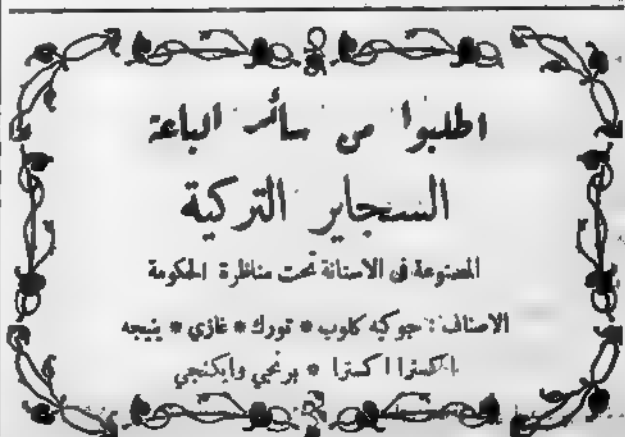 اطلبوا من سائر الباعة
السنجاير التركية
المصنوعة في الاستانة تحت مناظرة الحكومة
الاصناف : جوكيه كلوب * تورك * غازي * ينيجه
اكسترا اكسترا * برنجي وايكنجي